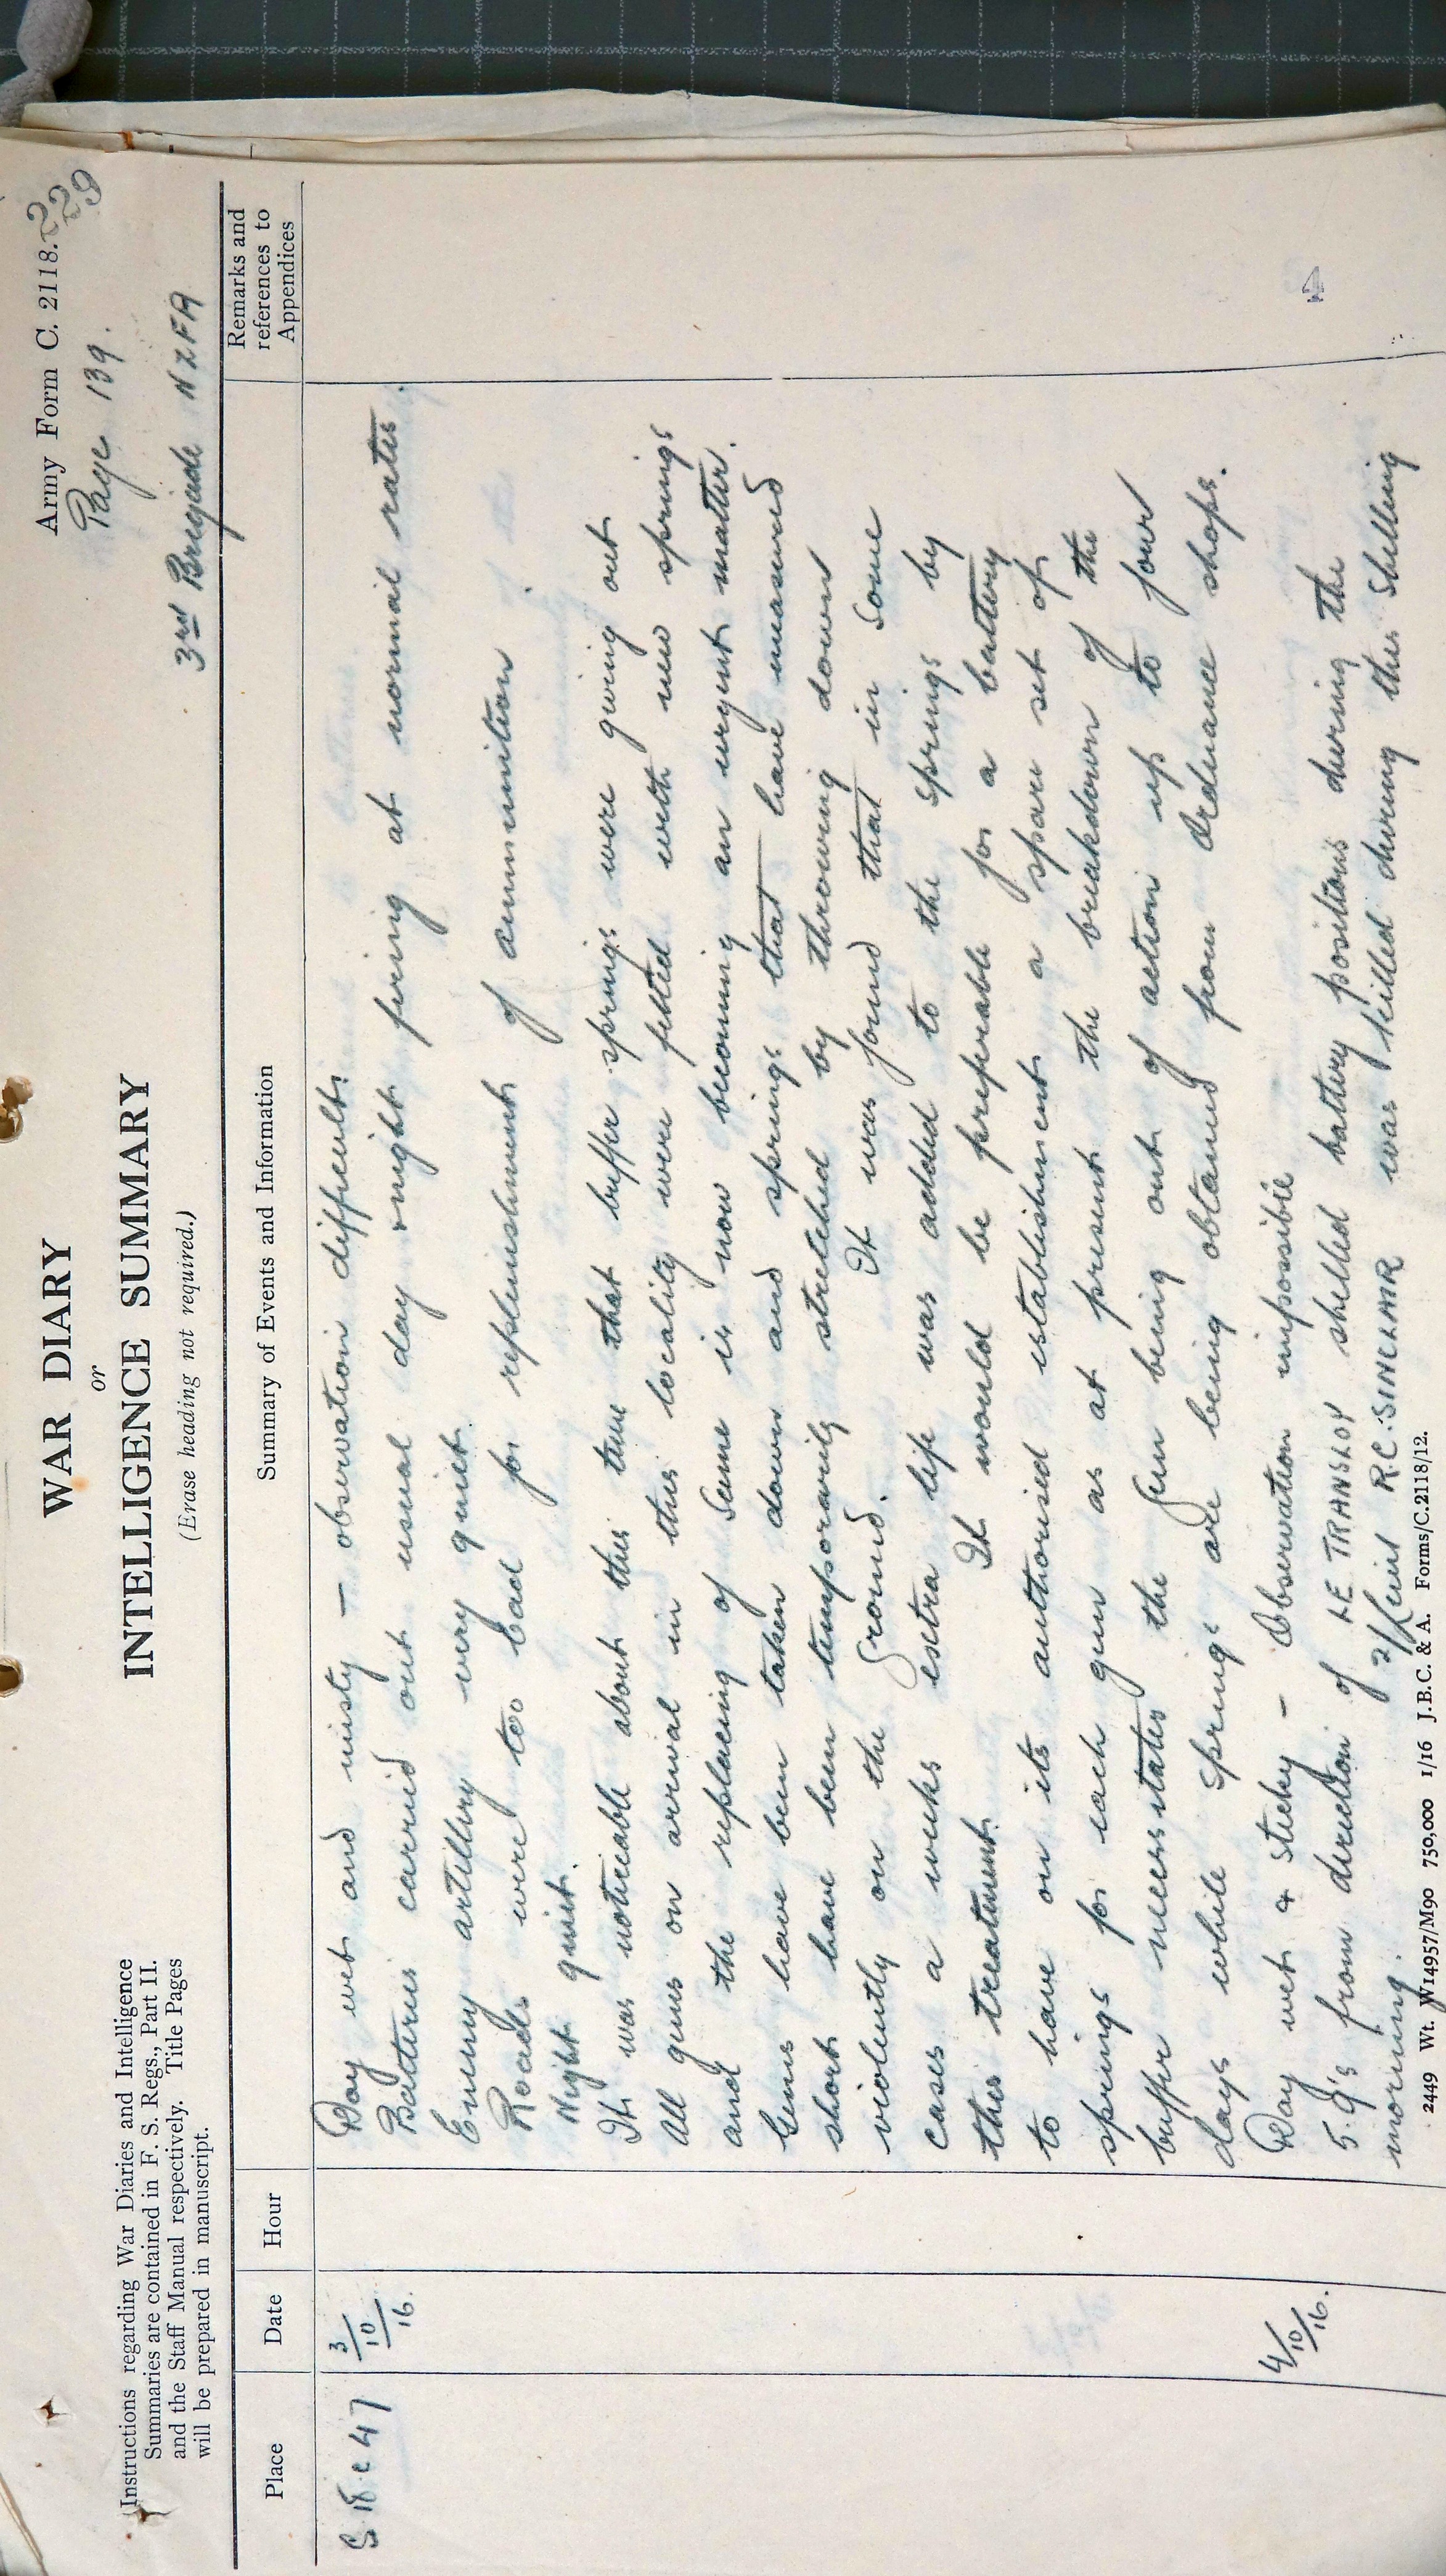 Army Form C. 2118.
229
Page 139.
3rd Brigade NZFA
WAR DIARY
or
INTELLIGENCE SUMMARY
(Erase heading not required.)
Instructions regarding War Diaries and Intelligence
Summaries are contained in F. S. Regs., Part II.
and the Staff Manual respectively. Title Pages
will be prepared in manuscript.
Place
Date
Hour
Summary of Events and Information
Remarks and
references to
Appendices
S.18.c 47
3/10/16.
Day wet and misty — observation difficult.
Batteries carried out usual day & night firing at normal rates.
Enemy artillery very quiet.
Roads were too bad for replenishment of ammunition.
Night quiet.
It was noticeable about this time that buffer springs were giving out
All guns on arrival in this locality were fitted with new springs
and the replacing of same is now becoming an urgent matter.
Guns have been taken down and springs that have measured
short have been temporarily stretched by throwing down
violently on the ground. It was found that in some
cases a weeks extra life was added to the springs by
this treatment. It would be preferable for a battery
to have on its authorised establishment a spare set of
springs for each gun as at present the breakdown of the
buffer necessitates the gun being out of action up to four
days while springs are being obtained from Ordnance shops.
4/10/16.
Day wet & sticky – Observation impossible
5.9's from direction of LE TRANSLOY shelled battery positions during the
morning. 2/Lieut R.C. SINCLAIR was killed during this shelling
4
2449 Wt. W14957/M90 750,000 1/16 J.B.C. & A. Forms/C.2118/12.